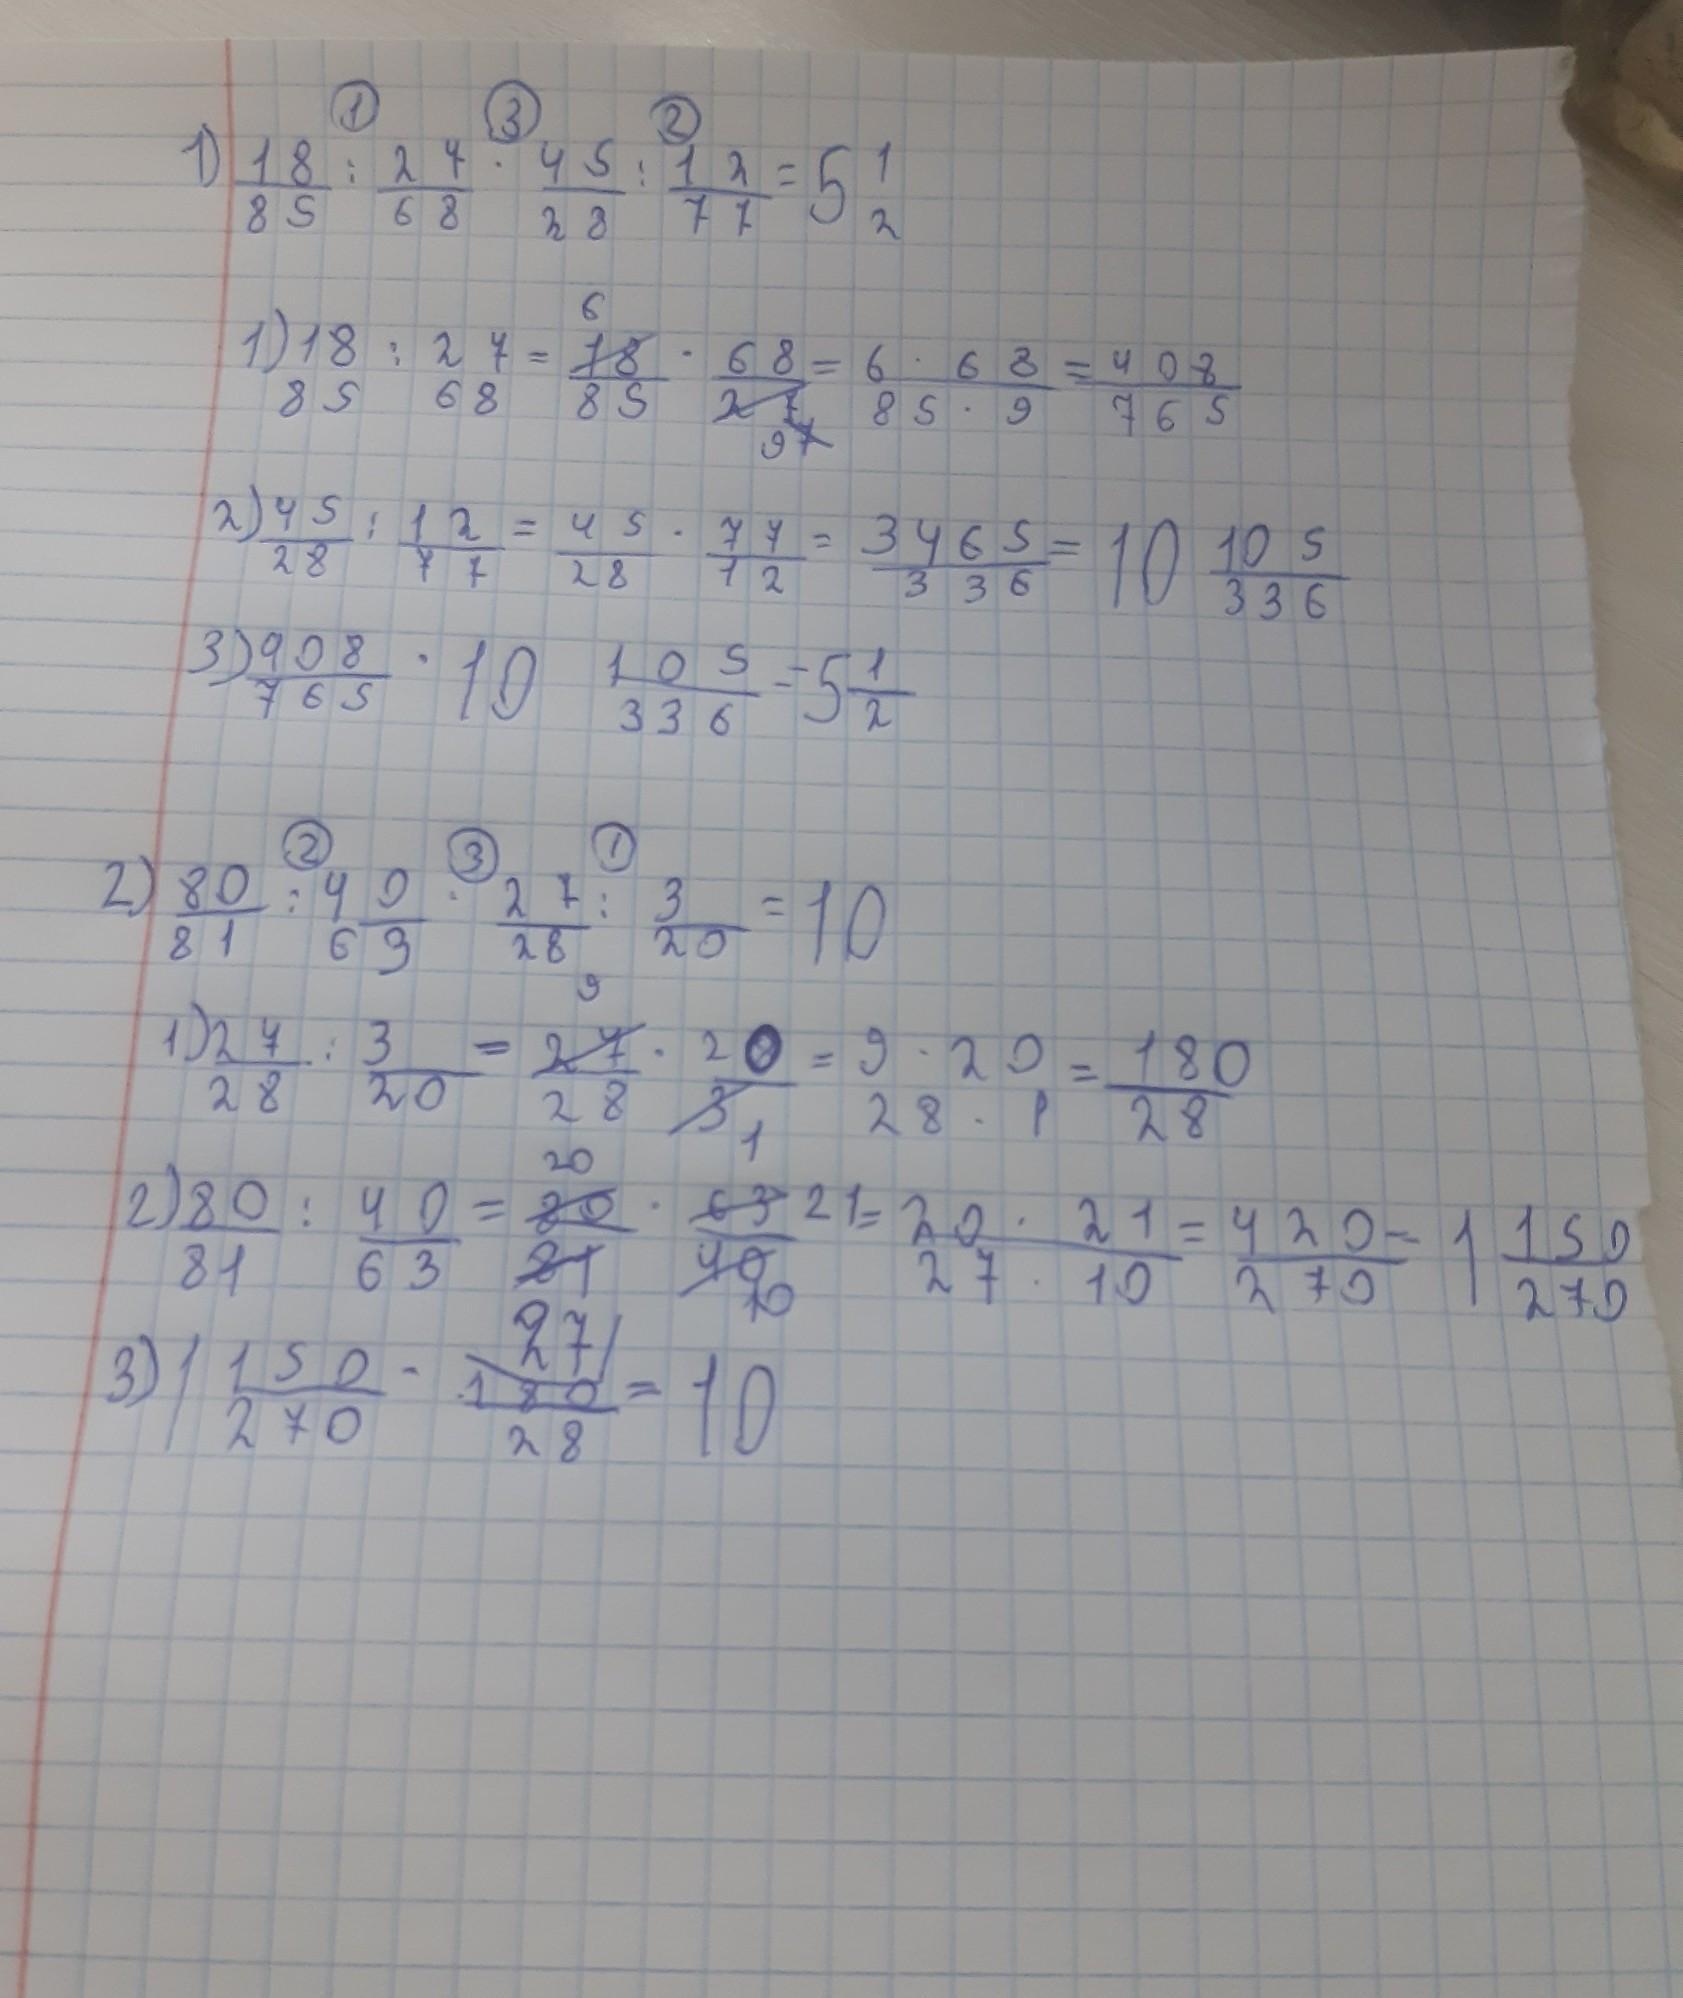 ① ③ ②
1) 18/85 : 27/68 · 45/28 : 12/77 = 5 1/2
6
1) 18/85 : 27/68 = 18/85 · 68/27 = 6 · 68/85 · 9 = 408/765
9
2) 45/28 : 12/77 = 45/28 · 77/12 = 3465/336 = 10 105/336
3) 908/765 · 10 105/336 = 5 1/2
② ③ ①
2) 80/81 : 40/63 · 27/28 : 3/20 = 10
9
1) 27/28 : 3/20 = 27/28 · 20/3 = 9 · 20/28 · 1 = 180/28
1
20
2) 80/81 : 40/63 = 80/81 · 63/40 21 = 20 · 21/27 · 10 = 420/270 = 1 150/270
27 10
3) 1 150/270 · 180/28 = 10